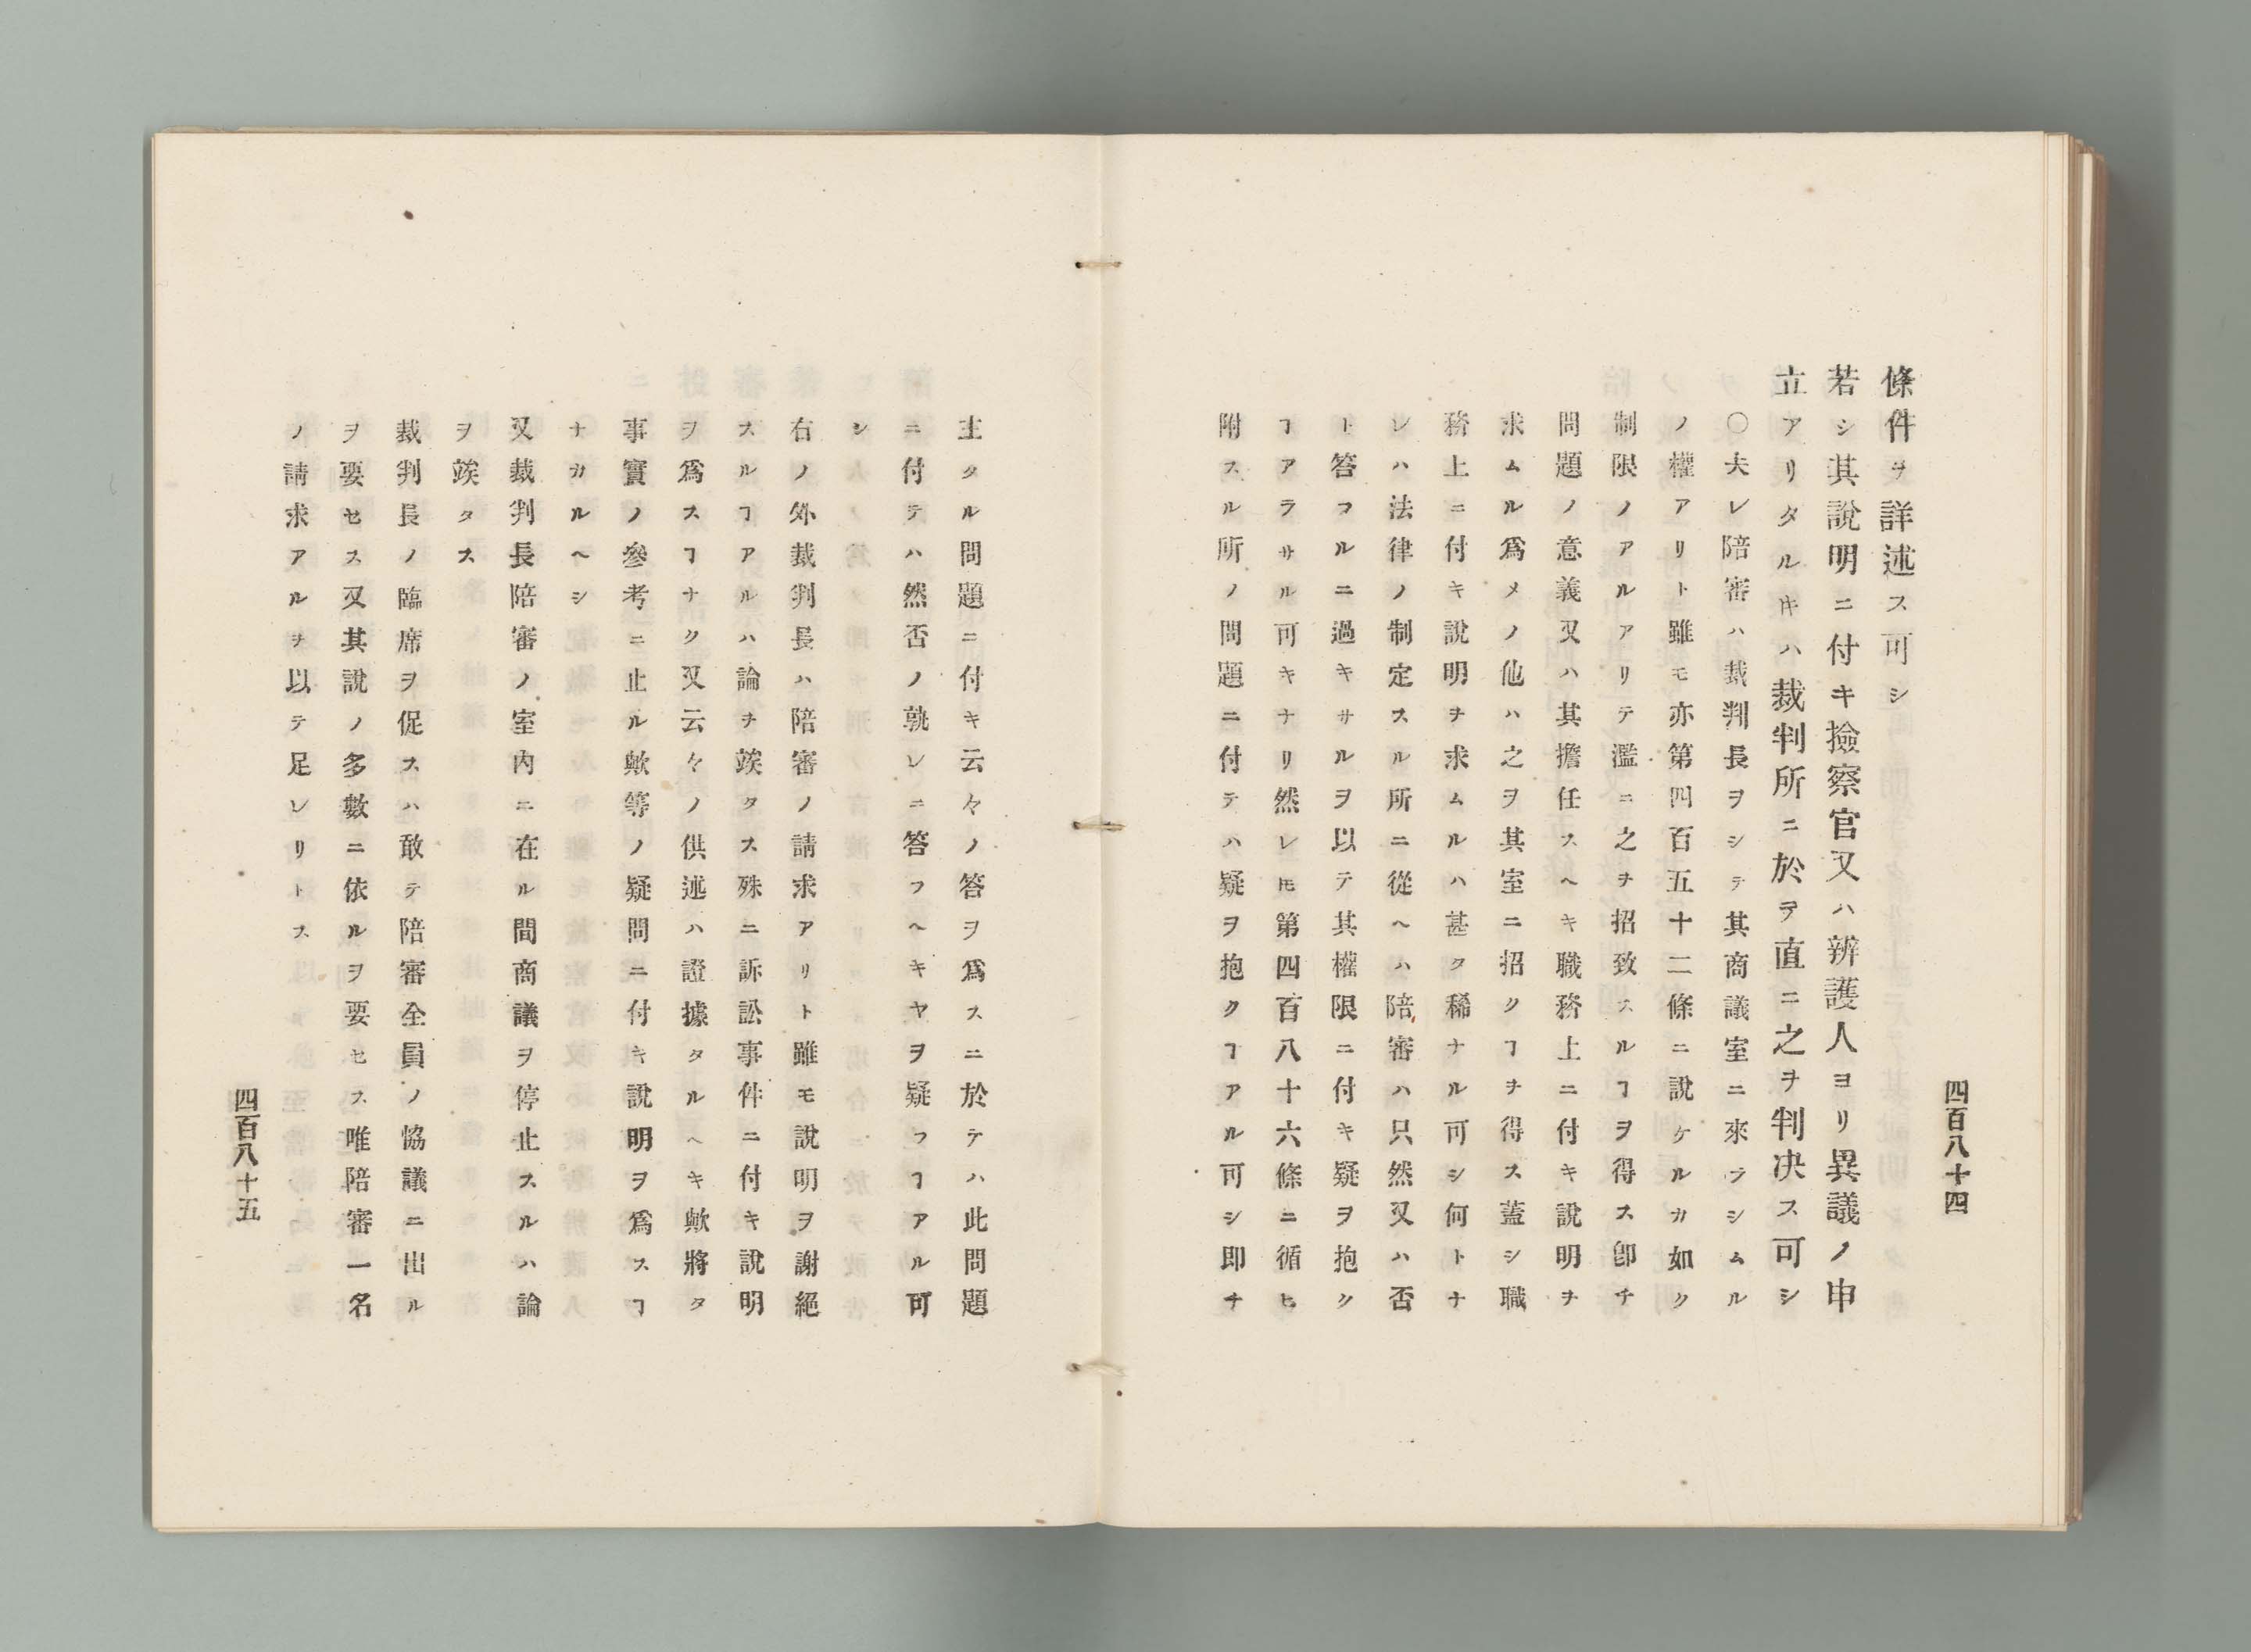 四百八十四
條件ヲ詳述ス可シ
若シ其說明ニ付キ撿察官又ハ辨護人ヨリ異議ノ申
立アリタルキハ裁判所ニ於テ直ニ之ヲ判决ス可シ
〇夫レ陪審ハ裁判長ヲシテ其商議室ニ來ラシムル
ノ權アリト雖モ亦第四百五十二條ニ說ケルカ如ク
制限ノアルアリテ濫ニ之ヲ招致スルヿヲ得ス卽チ
問題ノ意義又ハ其擔任スヘキ職務上ニ付キ說明ヲ
求ムル爲メノ他ハ之ヲ其室ニ招クヿヲ得ス蓋シ職
務上ニ付キ說明ヲ求ムルハ甚タ稀ナル可シ何トナ
レハ法律ノ制定スル所ニ從ヘハ陪審ハ只然又ハ否
ト答フルニ過キサルヲ以テ其權限ニ付キ疑ヲ抱ク
ヿアラサル可キナリ然レ𪜈第四百八十六條ニ循ヒ
附スル所ノ問題ニ付テハ疑ヲ抱クヿアル可シ即チ
主タル問題ニ付キ云々ノ答ヲ爲スニ於テハ此問題
ニ付テハ然否ノ孰レニ答フヘキヤヲ疑フヿアル可
シ
右ノ外裁判長ハ陪審ノ請求アリト雖モ說明ヲ謝絕
スルヿアルハ論ヲ竢タス殊ニ訴訟事件ニ付キ說明
ヲ爲スヿナク又云々ノ供述ハ證據タルヘキ歟將タ
事實ノ參考ニ止ル歟等ノ疑問ニ付キ說明ヲ爲スヿ
ナカルヘシ
又裁判長陪審ノ室內ニ在ル間商議ヲ停止スルハ論
ヲ竢タス
裁判長ノ臨席ヲ促スハ敢テ陪審全員ノ恊議ニ出ル
ヲ要セス又其說ノ多數ニ依ルヲ要セス唯陪審一名
ノ請求アルヲ以テ足レリトス
四百八十五